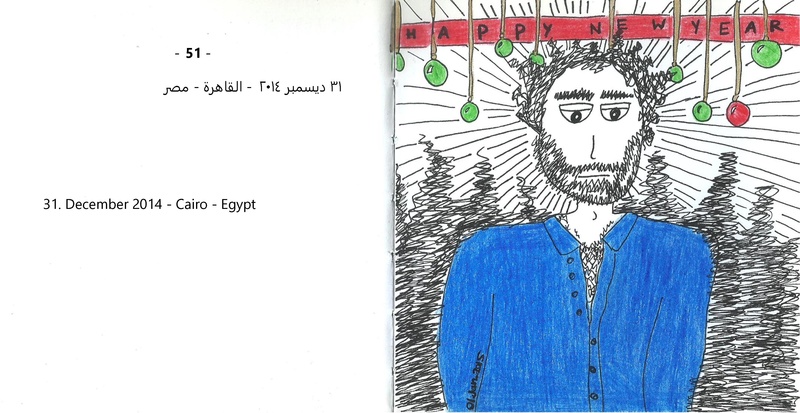 - 51 -
٣١ ديسمبر ٢٠١٤ - القاهرة - مصر
31. December 2014 - Cairo - Egypt
HAPPY NEW YEAR